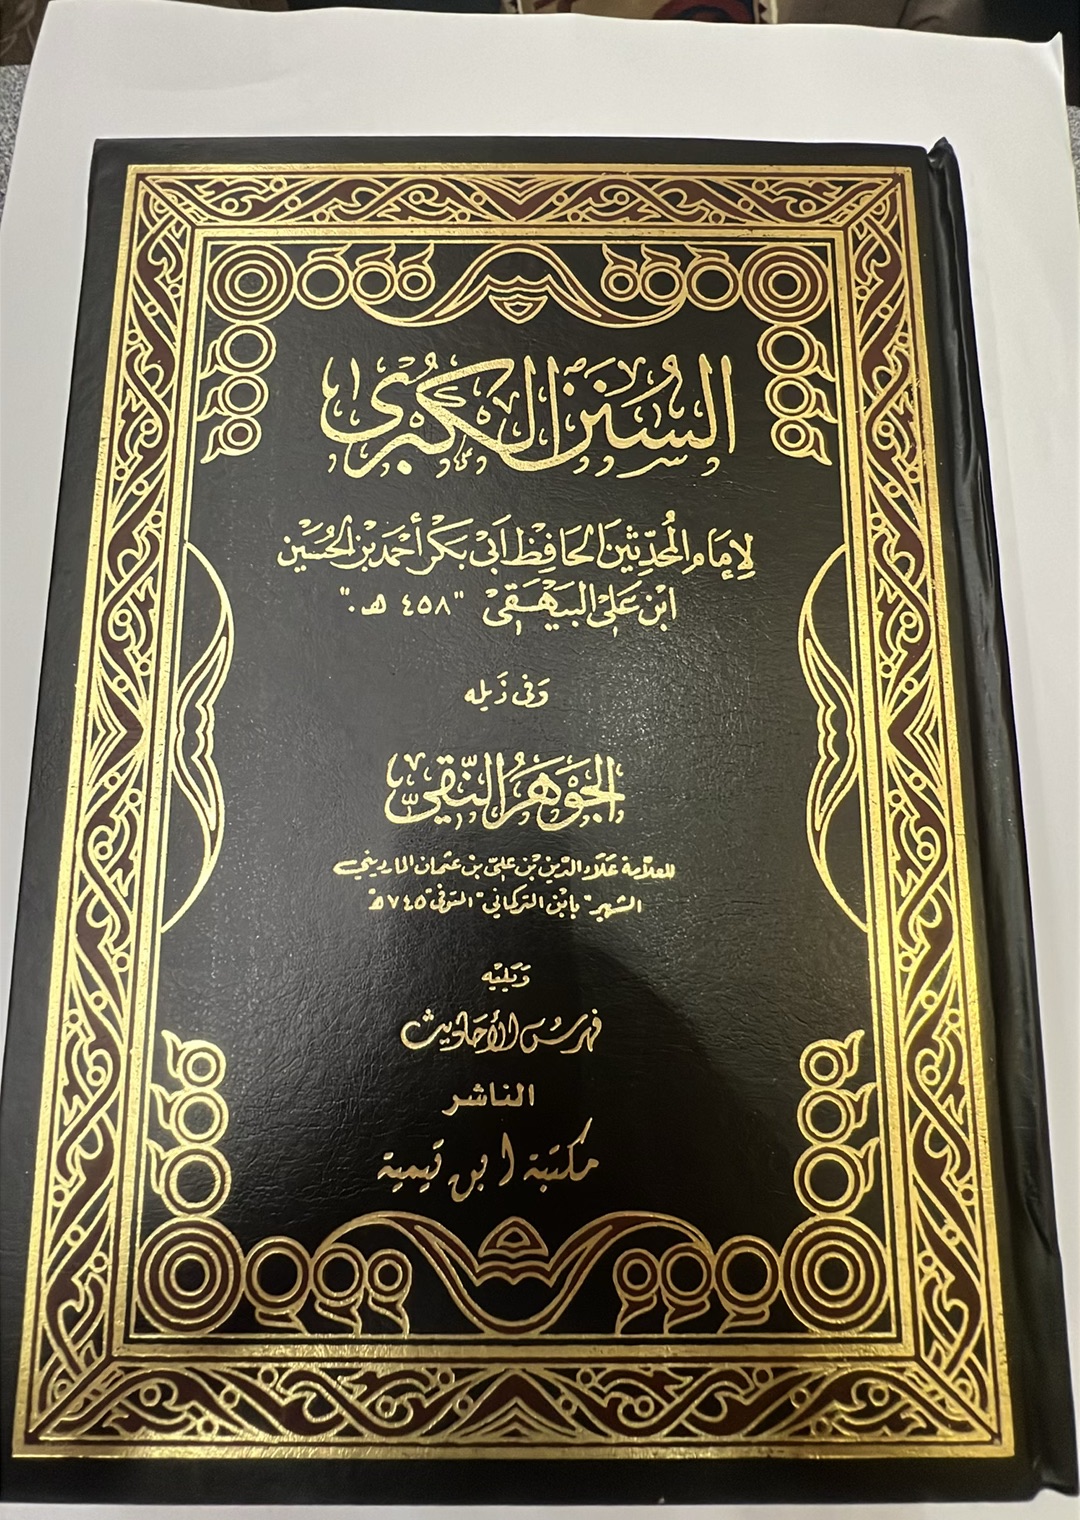 السُّنَنُ الْكُبْرَى
لِإِمَامِ الْمُحَدِّثِينَ الْحَافِظِ أَبِي بَكْرٍ أَحْمَدَ بْنِ الْحُسَيْنِ
ابْنِ عَلِيٍّ الْبَيْهَقِي "٤٥٨ هـ."
وَفِي ذَيْلِهِ
الْجَوْهَرُ النَّقِيّ
للعلامة علاء الدين بن علي بن عثمان المارديني
الشهير "بابن التركماني" المتوفى ٧٤٥ھ
وَيَلِيهِ
فهرس الأحاديث
الناشر
مكتبة ابن تيمية